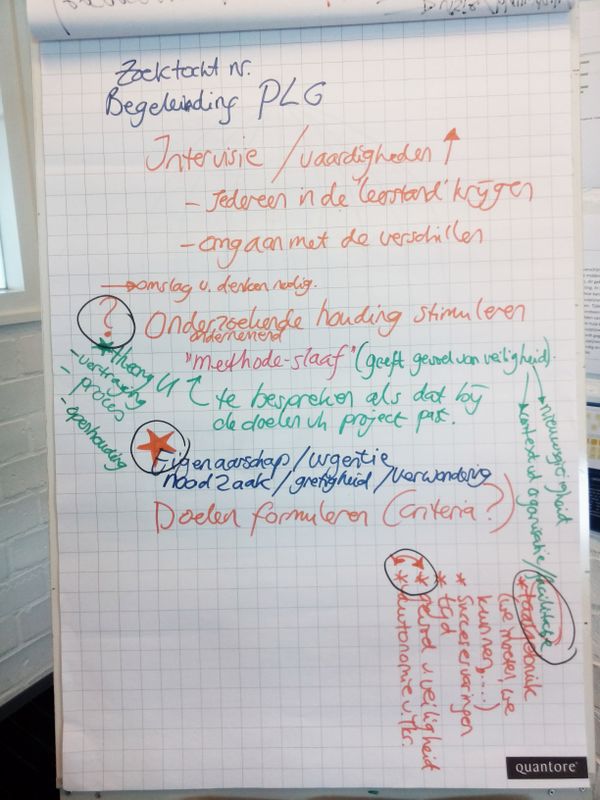 Zoektocht nr.
Begeleiding PLG
Intervisie / vaardigheden ↑
- Iedereen in de 'leerstand' krijgen
- omgaan met de verschillen
→ omslag v. denken nodig.
? Onderzoekende houding stimuleren
ondernemend
"methode-slaaf" (geeft gevoel van veiligheid).
te bespreken als dat bij
de doelen v/h project past.
- vertraging
- proces
- openhouding
Eigenaarschap / urgentie
noodzaak / gretigheid / verwondering
Doelen formuleren (criteria?)
→ nieuwsgierigheid
→ context v/d organisatie / facilitatie
* taalgebruik
(we moeten, we
kunnen, ....)
* succeservaringen
* tijd
* gevoel v. veiligheid
* autonomie v. lkr.
quantore